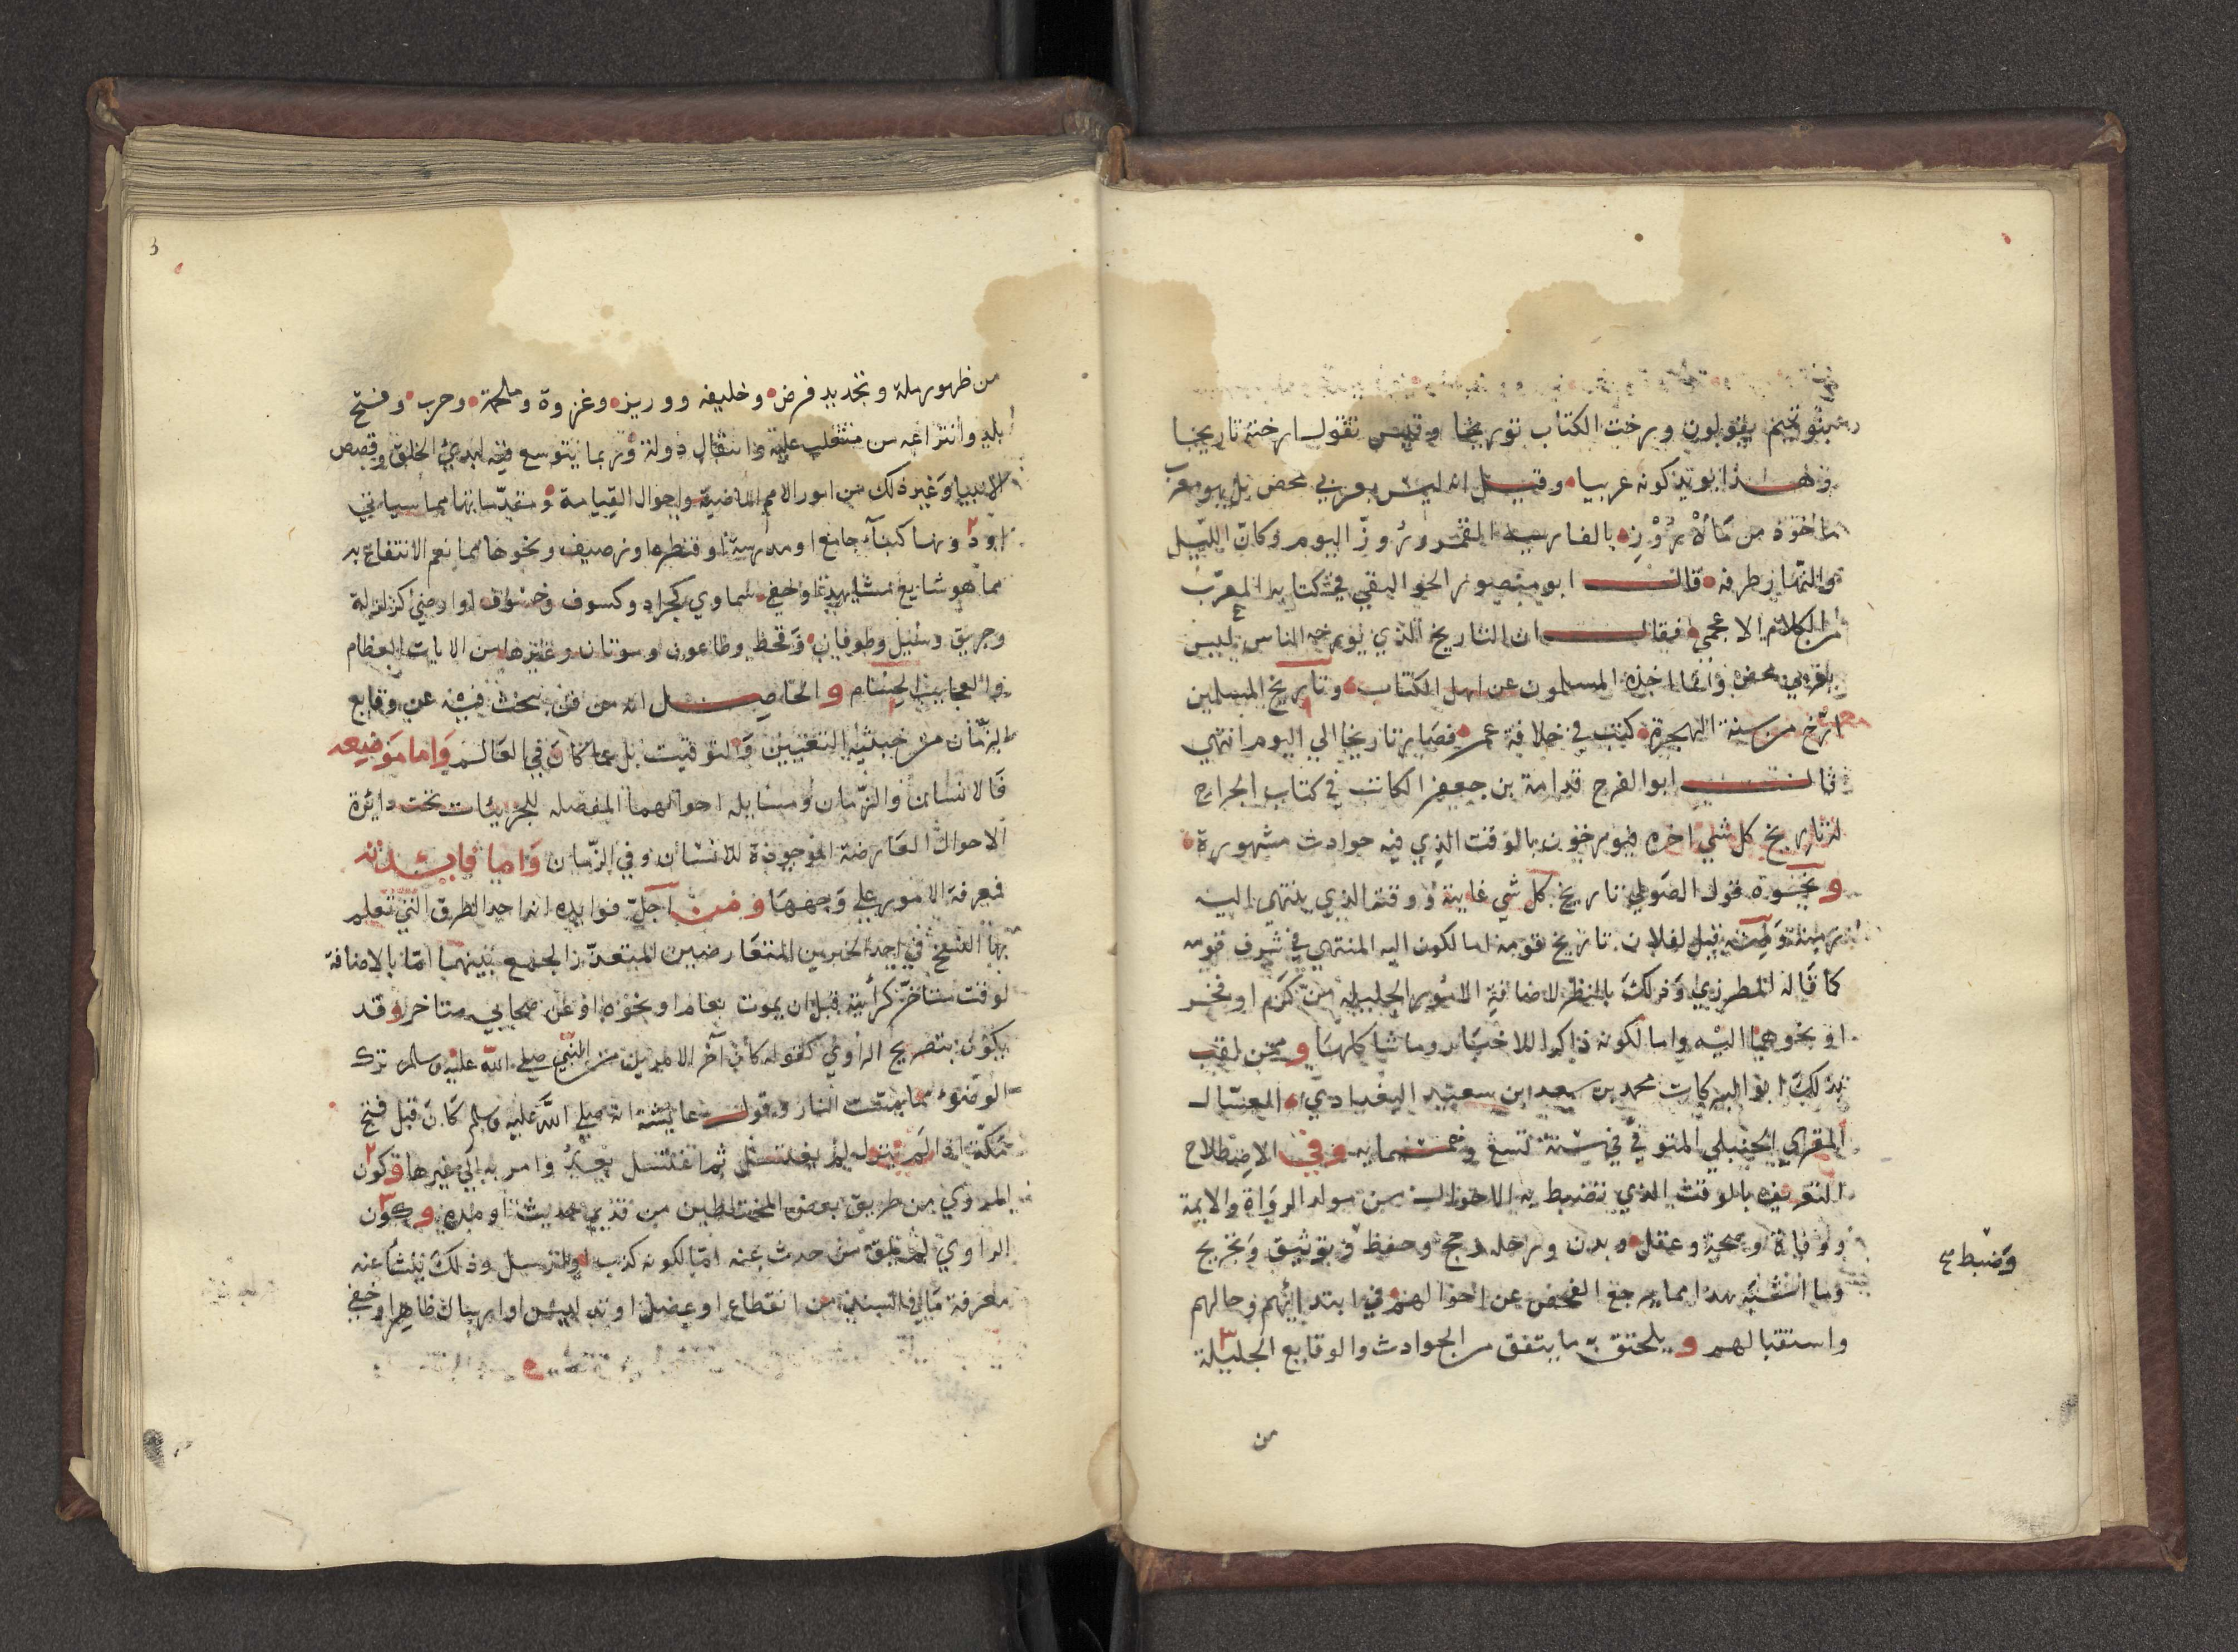 وبنو تميم يقولون ورخت الكتاب توريخا وقيس تقول ارخته تاريخا
وهذا يؤيد كونه عربيا وقيل انه ليس بعربي محض بل هو معرب
ماخوذ من ماه روز بالفارسية القمر وروز اليوم وكان الليل
والنهار طرفه قال ابو منصور الجواليقي في كتابه المعرب
من الكلام الاعجمي فيقال ان التاريخ الذي يورخه الناس ليس
بعربي محض وانما اخذه المسلمون عن اهل الكتاب وتاريخ المسلمين
ارخ من سنة الهجرة كتب في خلافة عمر فصار تاريخا الي اليوم انتهي
قال ابو الفرج قدامة بن جعفر الكاتب في كتاب الخراج
تاريخ كل شي اخره فيورخون بالوقت الذي فيه حوادث مشهورة
ونحوه قول الصولي تاريخ كل شي غايته ووقته الذي ينتهي اليه
زمنه ومنه قيل لفلان تاريخ قومه اما لكون اليه المنتهي في شرف قومه
كما قاله المطرزي وذلك بالنظر لاضافة الامور الجليلة من كرم او فخر
او نحوهما اليه واما لكونه ذاكرا للاخبار وما شاكلها وممن لقب
بذلك ابو البركات محمد بن سعد بن سعيد البغدادي العسال
المقري الحنبلي المتوفي في سنة تسع وخمسماية وفي الاصطلاح
التعريف بالوقت الذي تنضبط به الاحوال من مولد الرواة والايمة
ووفاة وصحة وعقل وبدن ورحلة وحج وحفظ وتوثيق وتجريح
وضبط
وما اشبه هذا مما مرجعه الفحص عن احوالهم في ابتدائهم وحالهم
واستقبالهم ويلحق به ما يتفق من الحوادث والوقايع الجليلة
من
من ظهور ملة وتجديد فرض وخليفه ووزير وغزوة وملحمة وحرب وفتح
بلد وانتزاعه من متغلب عليه وانتقال دولة وربما يتوسع فيه لبدئ الخلق وقصص
الانبيا وغير ذلك من امور الامم الماضية واحوال القيامة ومقدماتها مما سياتي
او دونها كبناء جامع او مدرسة او قنطرة او رصيف ونحوها مما يعم الانتفاع به
مما هو شايع مشاهد او خفي سماوي كجراد وكسوف وخسوف او ارضي كزلزلة
وحريق وسيل وطوفان وقحط وطاعون وموتان وغيرها من الايات العظام
والعجايب الجسام والحاصل انه من فن يبحث فيه عن وقايع
الزمان من حيثية التعيين والتوقيت بل عما كان في العالم واما موضوعه
فالانسان والزمان ومسايله احوالهما المفصله للجزئيات تحت دايرة
الاحوال العارضة الموجودة للانسان وفي الزمان واما فايدته
فمعرفة الامور علي وجهها ومن اجل فوايده انه احد الطرق التي تعلم
بها النسخ في احد الخبرين المتعارضين المتعذر الجمع بينهما اما بالاضافة
لوقت متاخر كرأيته قبل ان يموت بعام او نحوه او عن صحابي متاخر وقد
يكون بتصريح الراوي كقوله كان آخر الامرين من النبي صلى الله عليه وسلم ترك
الوضوء مما مست النار وقول عايشة انه صلي الله عليه وسلم كان قبل فتح
مكة اذا لم ينزل لم يغتسل ثم اغتسل بعد وامر به الي غيرها وكون
المروي من طريق بعض المختلطين من قديم حديثه او ضده وكون
الراوي لم يلق من حدث عنه اما لكونه كذب او ارسل وذلك ينشا عنه
معرفة ما في السند من انقطاع او عضل او تدليس او ارسال ظاهر او خفي